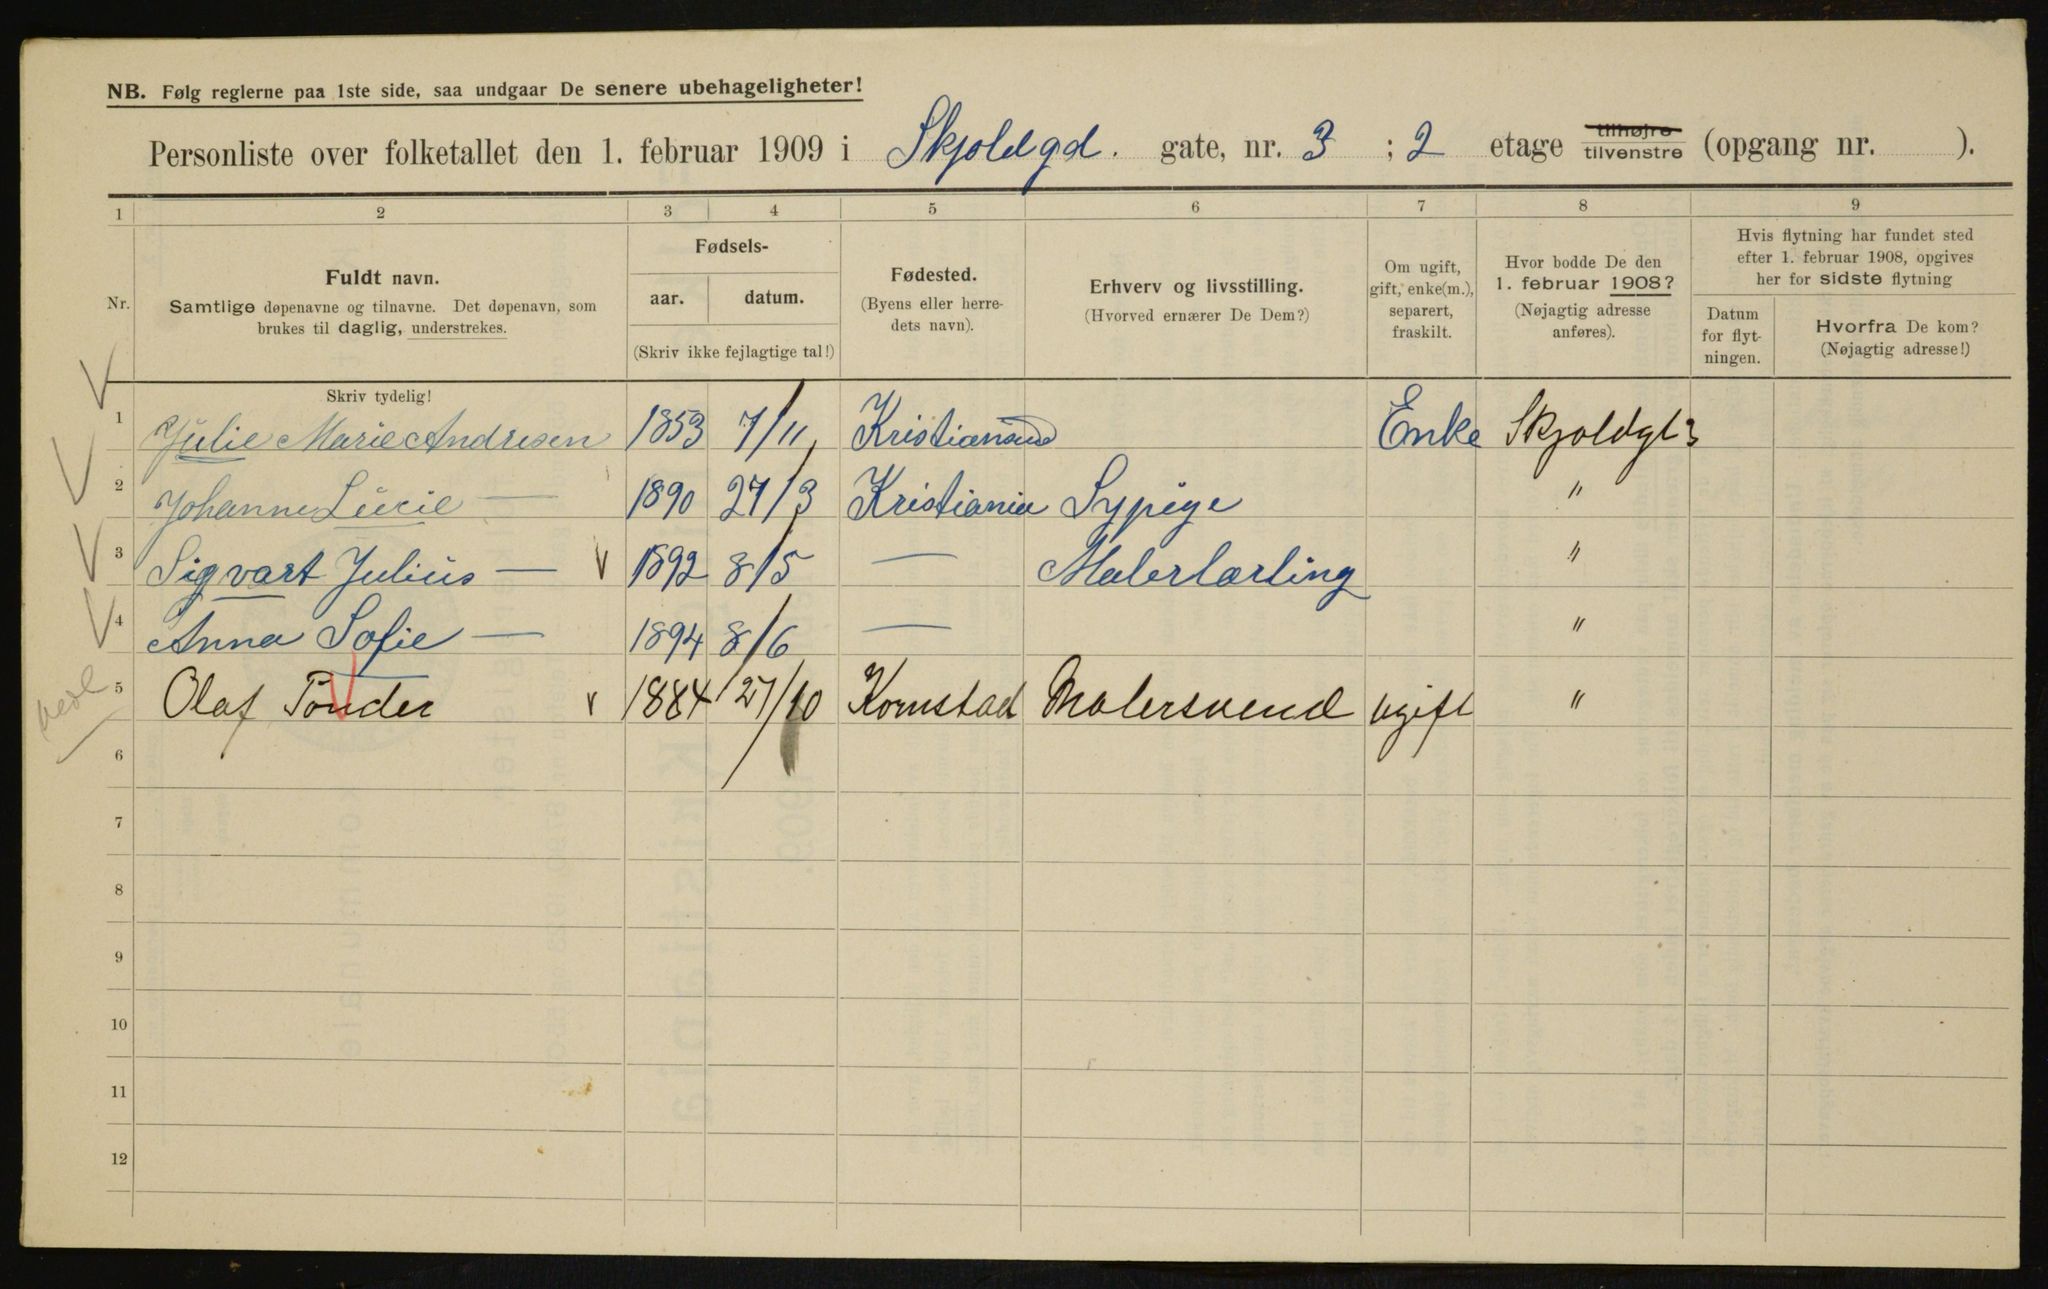 NB. Følg reglerne paa 1ste side, saa undgaar De senere ubehageligheter!
Personliste over folketallet den 1. februar 1909 i Skjoldgd. gate, nr. 3 ; 2 etage tilhøjre tilvenstre (opgang nr. ).
1 2 3 4 5 6 7 8 9
Nr.
Fuldt navn.
Samtlige døpenavne og tilnavne. Det døpenavn, som
brukes til daglig, understrekes.
Fødsels-
aar. datum.
(Skriv ikke fejlagtige tal!)
Fødested.
(Byens eller herre-
dets navn).
Erhverv og livsstilling.
(Hvorved ernærer De Dem?)
Om ugift,
gift, enke(m.),
separert,
fraskilt.
Hvor bodde De den
1. februar 1908?
(Nøjagtig adresse
anføres).
Hvis flytning har fundet sted
efter 1. februar 1908, opgives
her for sidste flytning
Datum
for flyt-
ningen.
Hvorfra De kom?
(Nøjagtig adresse!)
Skriv tydelig!
1 Julie Marie Andresen 1853 7/11 Kristiansund Enke Skjoldgt 3
2 Johanne Lucie — 1890 27/3 Kristiania Sypige "
3 Sigvart Julius — 1892 8/5 — Malerlærling "
4 Anna Sofie — 1894 8/6 — "
5 Olaf Tønder 1884 27/10 Kornstad Malersvend ugift "
6
7
8
9
10
11
12